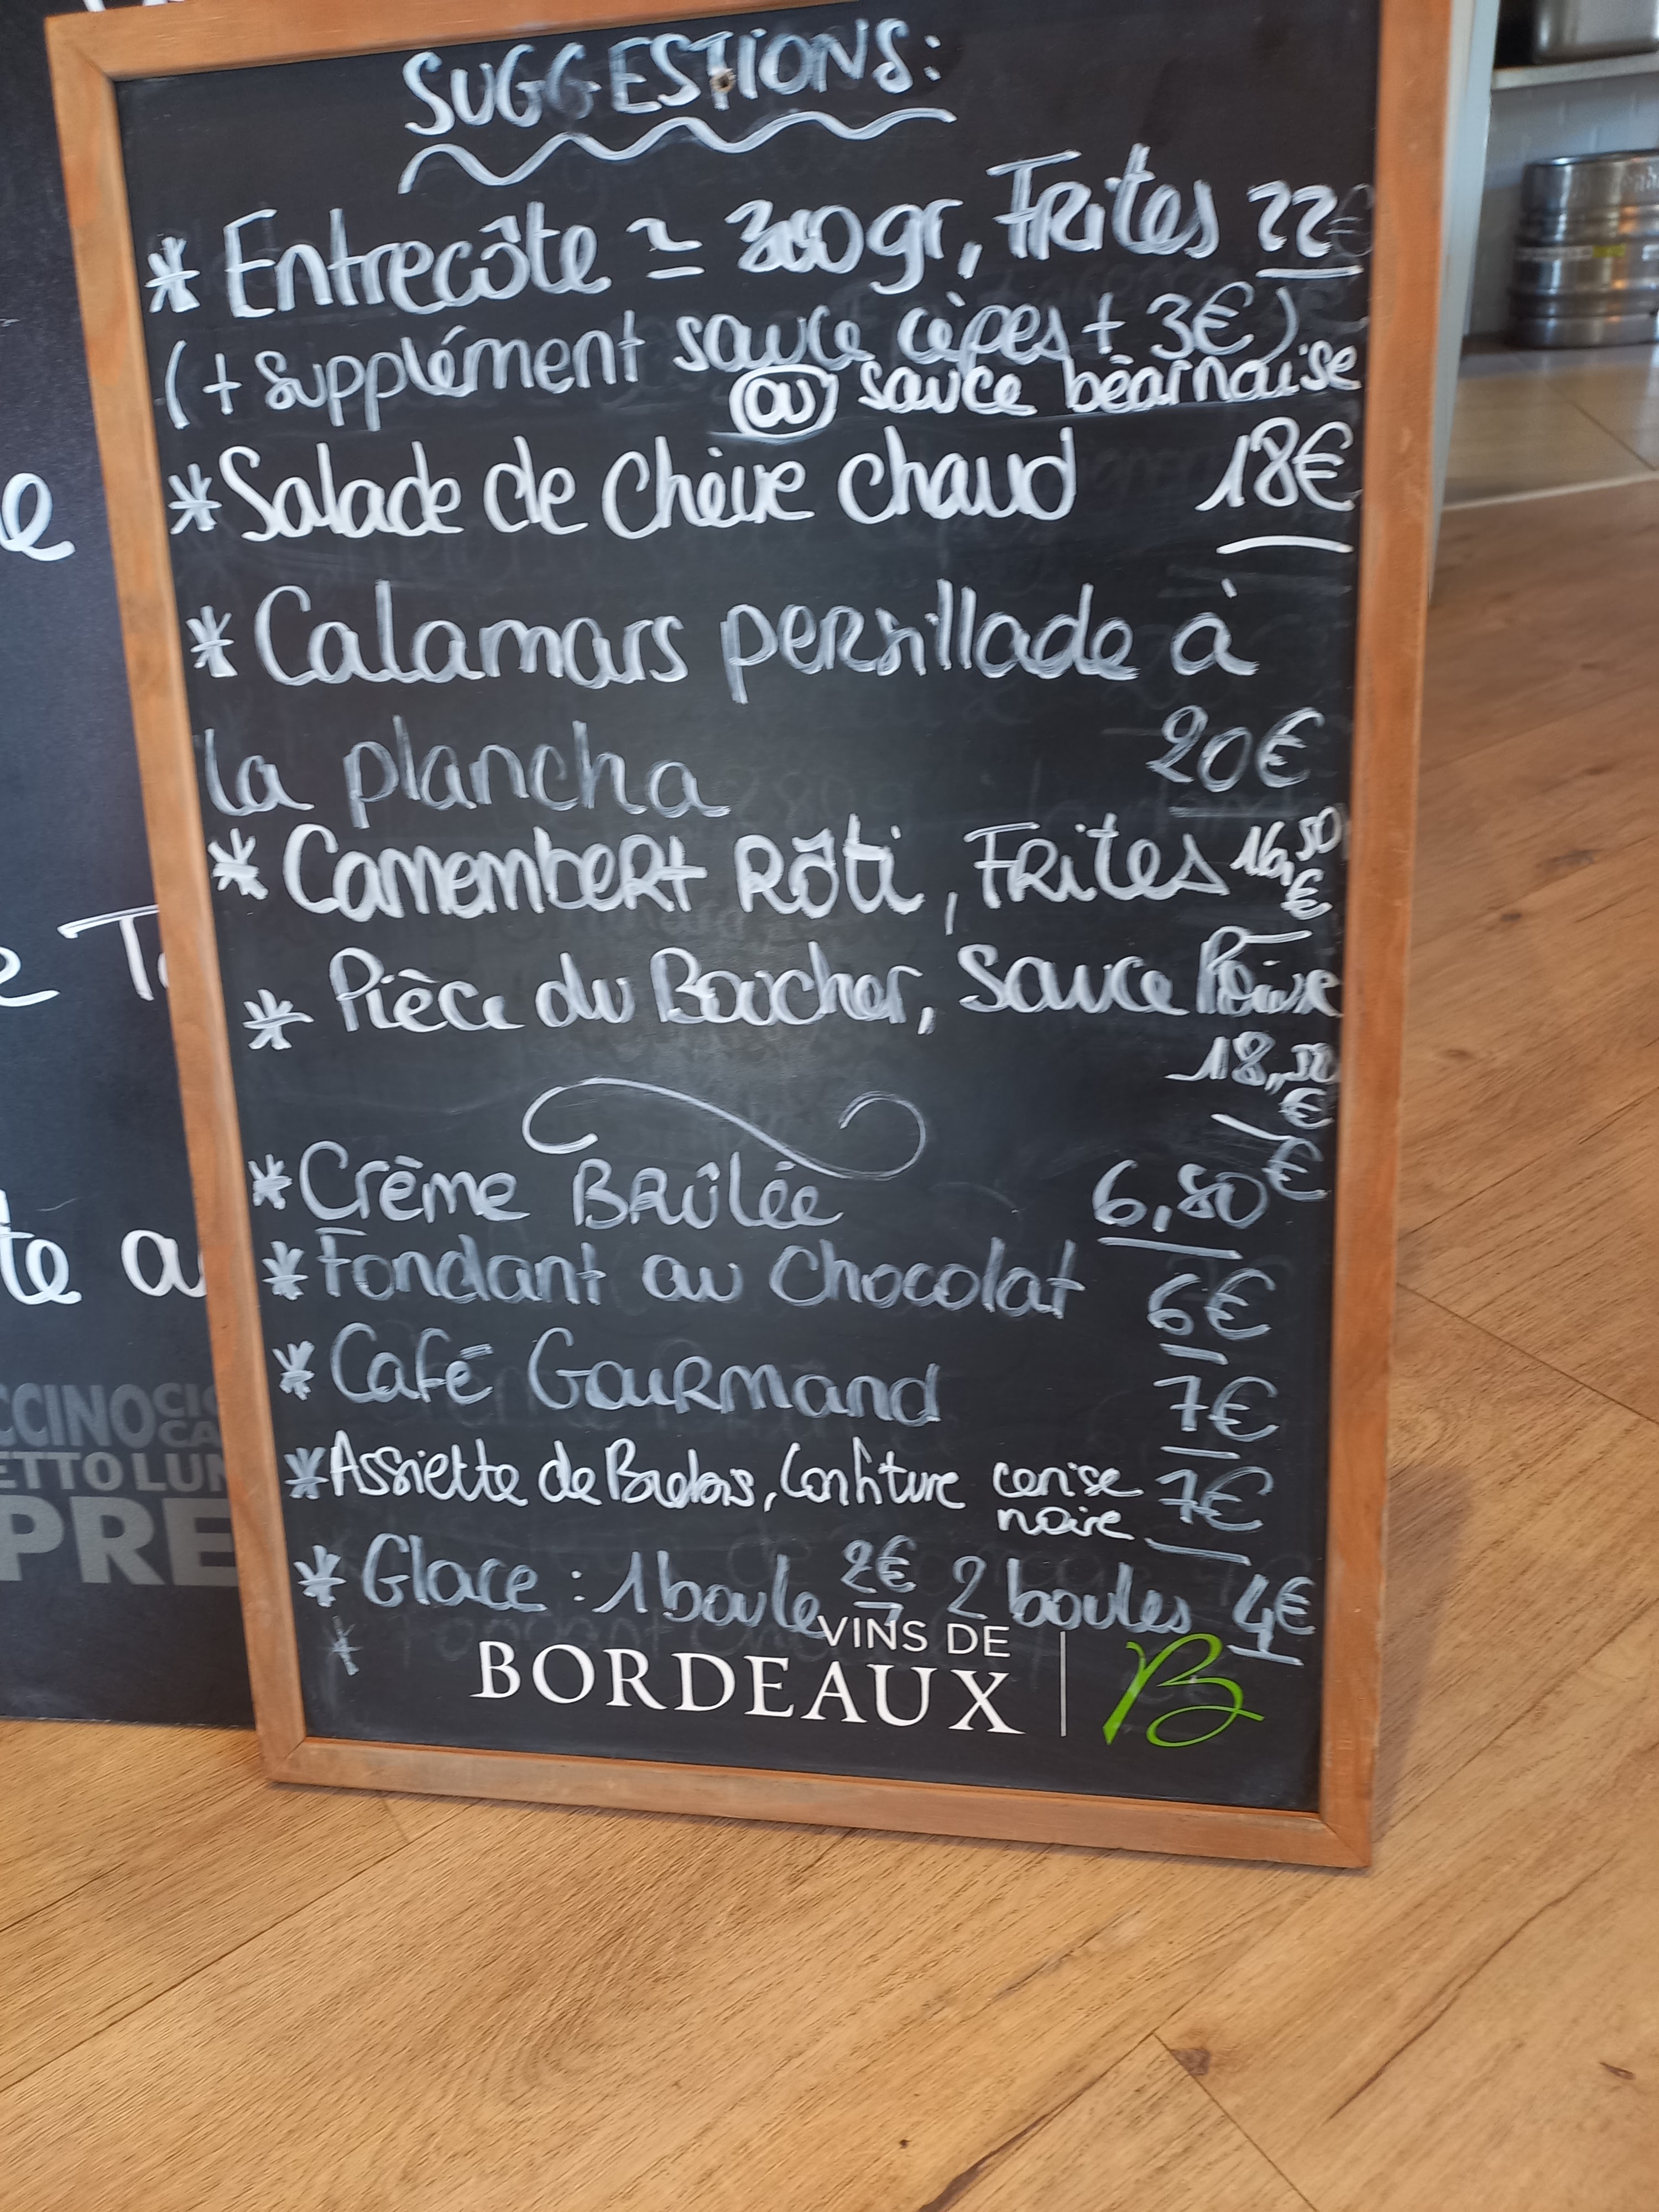 SUGGESTIONS:
* Entrecôte ≃ 300gr, Frites 22€
(+ supplément sauce cèpes + 3€)
ou sauce béarnaise
* Salade de Chèvre chaud 18€
* Calamars persillade à
la plancha 20€
* Camembert Rôti, Frites 16,50 €
* Pièce du Boucher, Sauce Poivre
18,50 €
* Crème Brûlée 6,80€
* Fondant au Chocolat 6€
* Café Gourmand 7€
* Assiette de Brebis, Confiture cerise 7€
noire
* Glace : 1 boule 2€ 2 boules 4€
*
VINS DE
BORDEAUX | B
e
te
CCINO
ETTO LUN
PRE